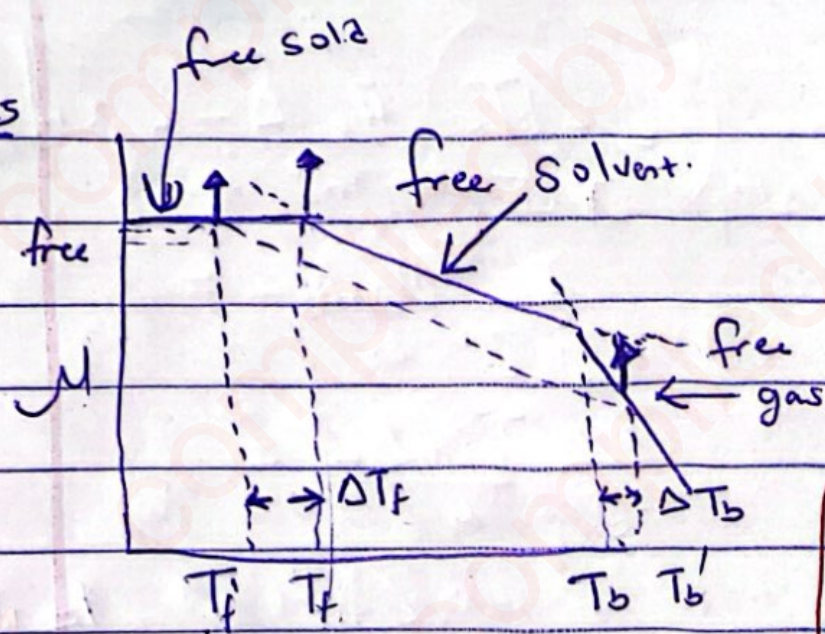 s
free sold
free solvent.
free
μ
free
gas
ΔTf
ΔTb
Tf' Tf Tb Tb'